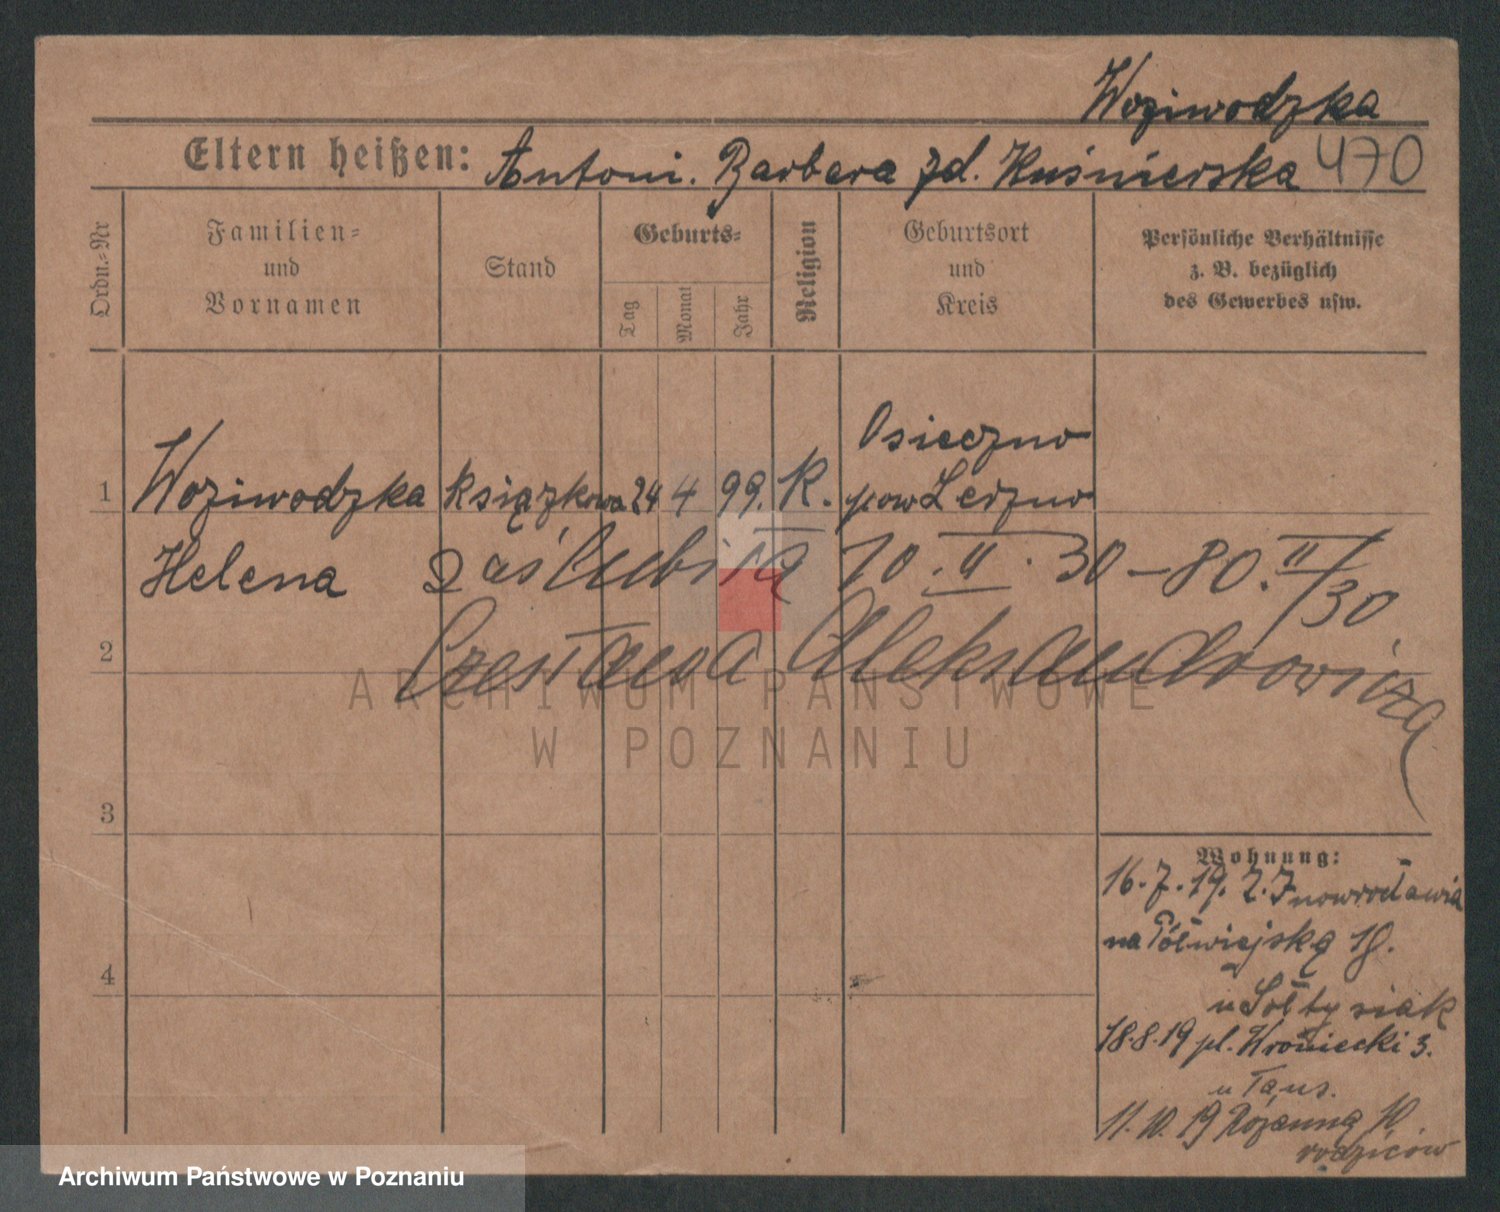 Woziwodzka
Eltern heißen: Antoni. Barbara zd. Kuśnierska 470
Ordn.-Nr
Familien- und Vornamen
Stand
Geburts-
Tag
Monat
Jahr
Religion
Geburtsort und Kreis
Persönliche Verhältnisse
z. B. bezüglich
des Gewerbes usw.
Osieczno
1 Woziwodzka Książkowa 24 4 99. K. pow Leszno
Helena Zaślubiła 10. II. 30 – 80. II/30
2 Czesława Aleksandrowicza
ARCHIWUM PAŃSTWOWE
W POZNANIU
3
Wohnung:
16.7.19. z. Inowrocławia
na Półwiejską 18.
4
u Sołtysiak
18.8.19 pl. Kroniecki 3.
u
11.10.19 Różanną 10
rodziców
Archiwum Państwowe w Poznaniu